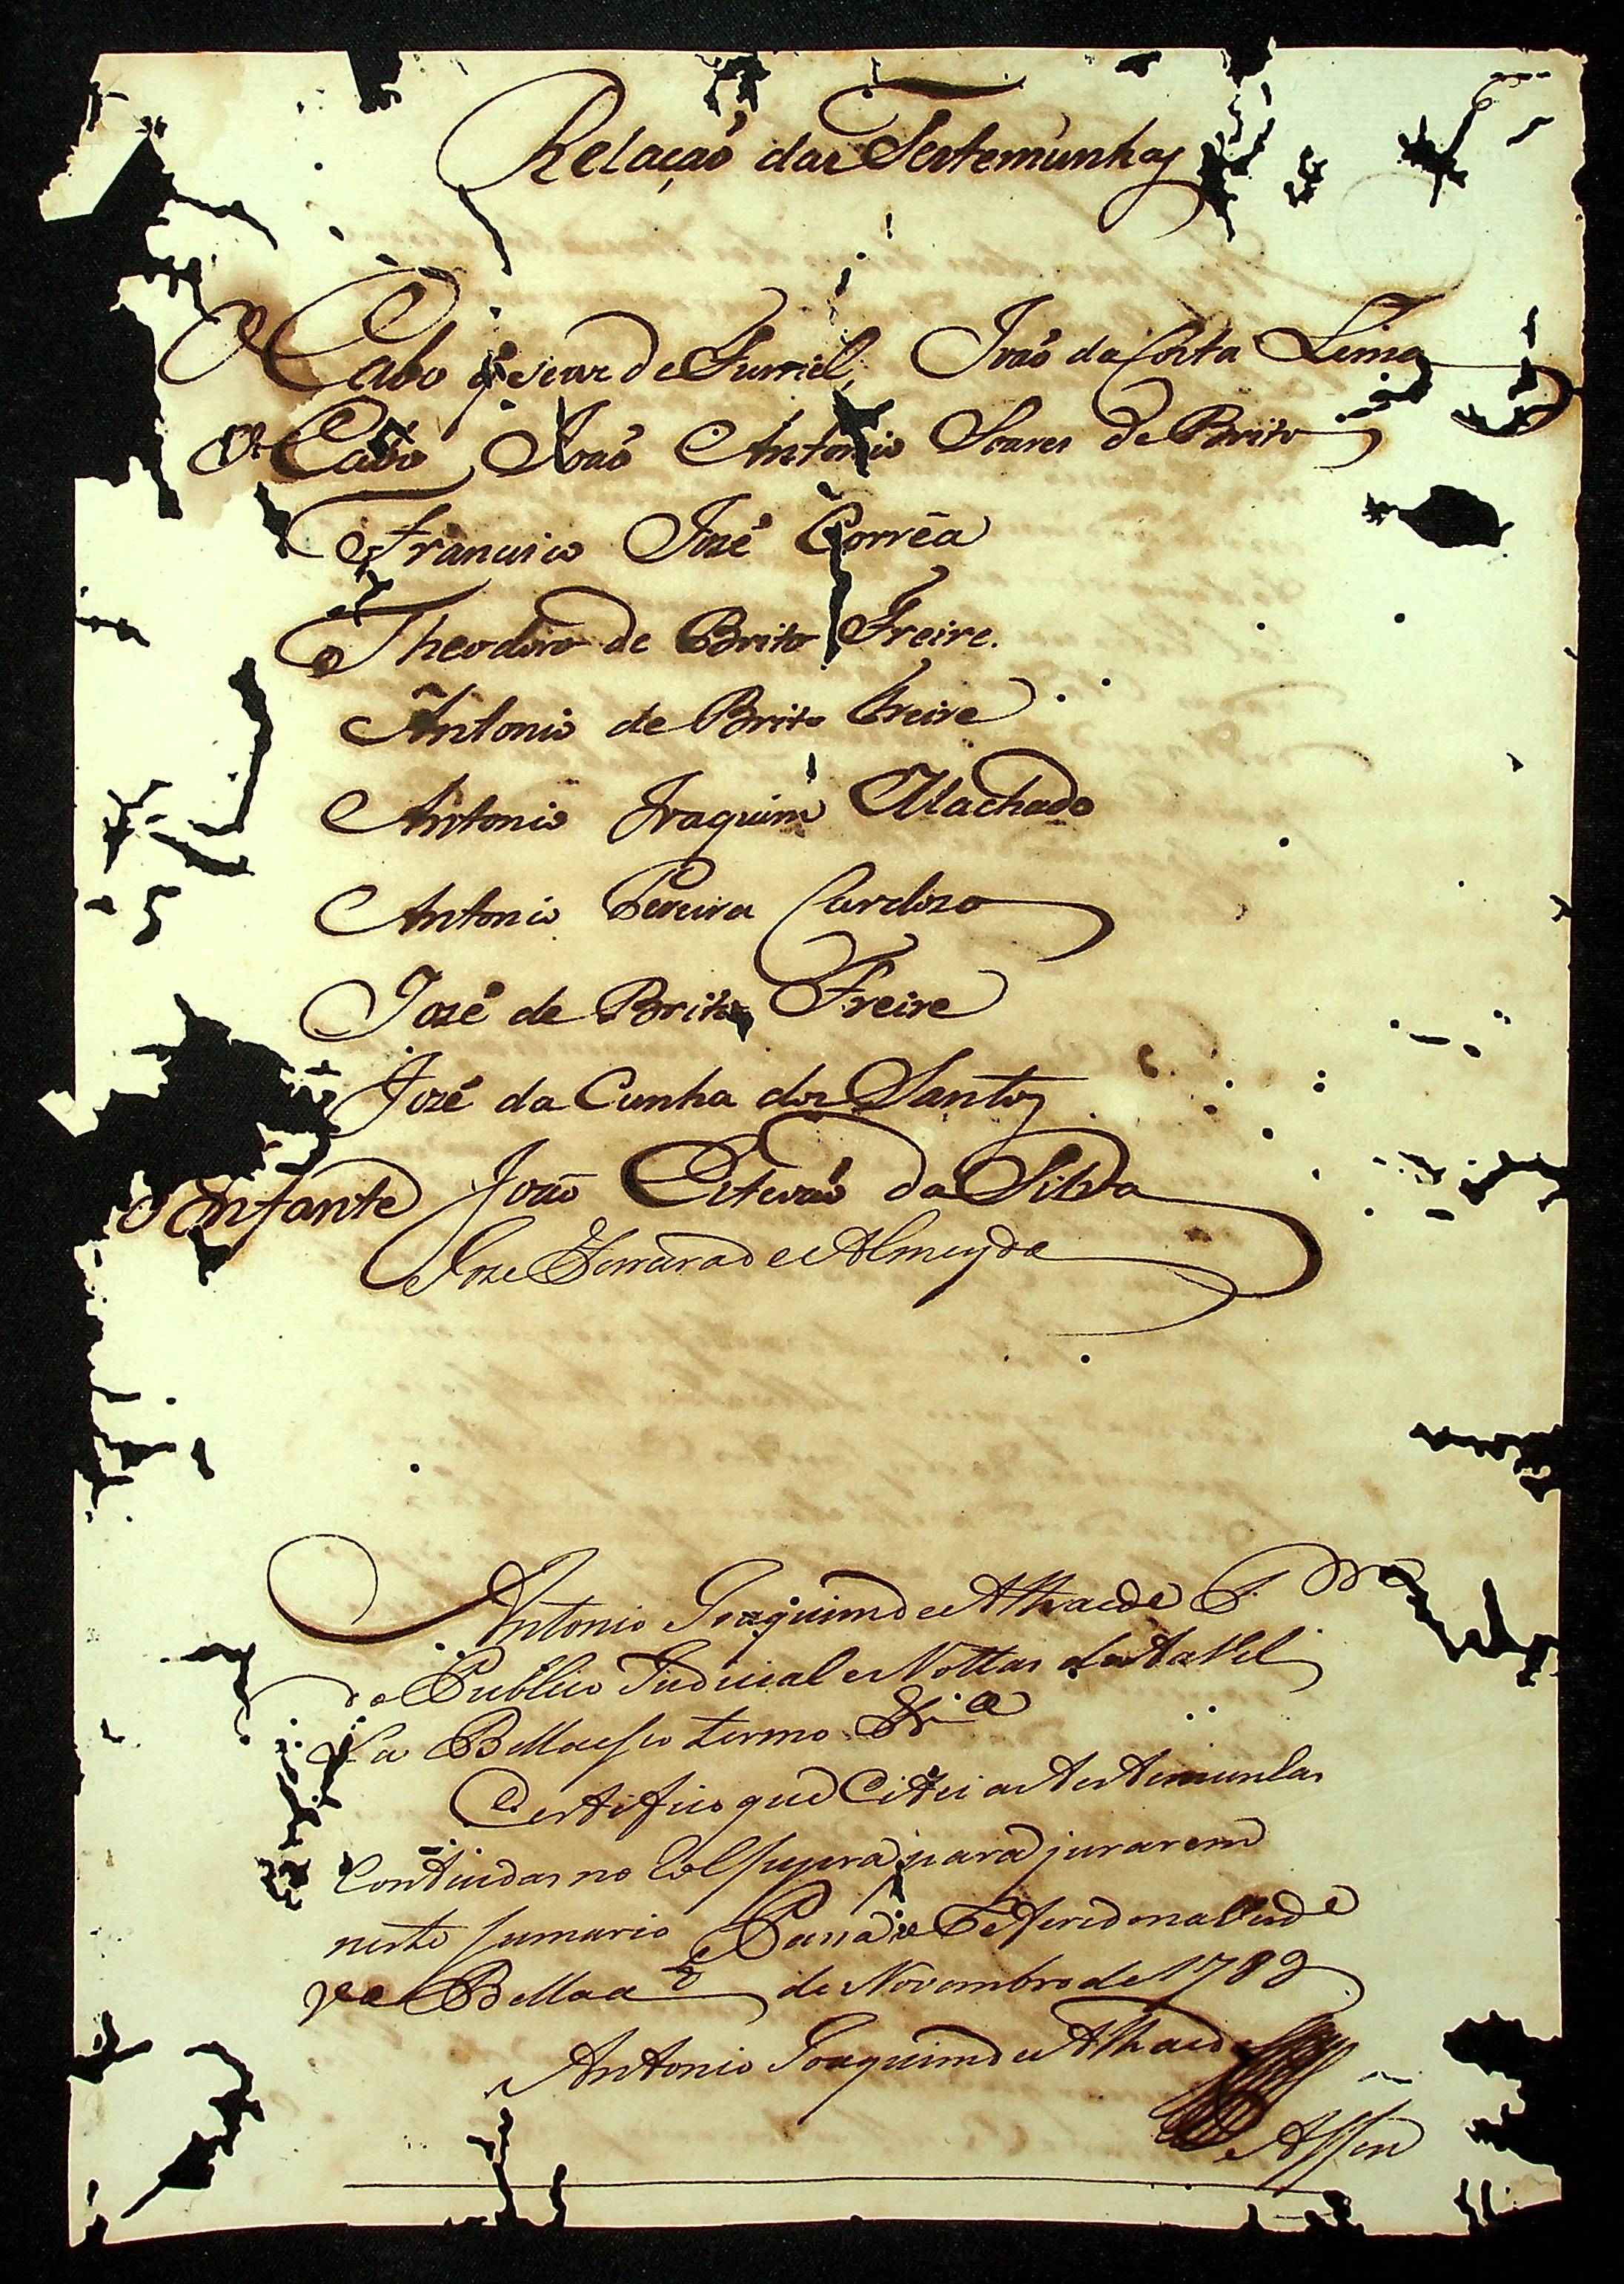 Relação das Testemunhas
O Cabo q̃ serve de Furriel, João da Costa Lima
O Cabo João Antonio Soares de Brito
Francisco José Corrêa
Theodoro de Brito Freire.
Antonio de Brito Freire
Antonio Joaquim Machado
Antonio Pereira Cardozo
José de Brito Freire
José da Cunha dos Santos
O Infante João Estevão da Silva
Joze Ferrera de Almeyda
Antonio Joaquim de Athaede
do Publico Judicial e Nottas desta Vil
la Bella e seo termo
Certifico que Citei as testemunhas
Contiudas no Rol supra para jurarem
neste sumario Passa o Referido na Verde
Va Bella a de Novembro de 1789
Antonio Joaquim de Athaede